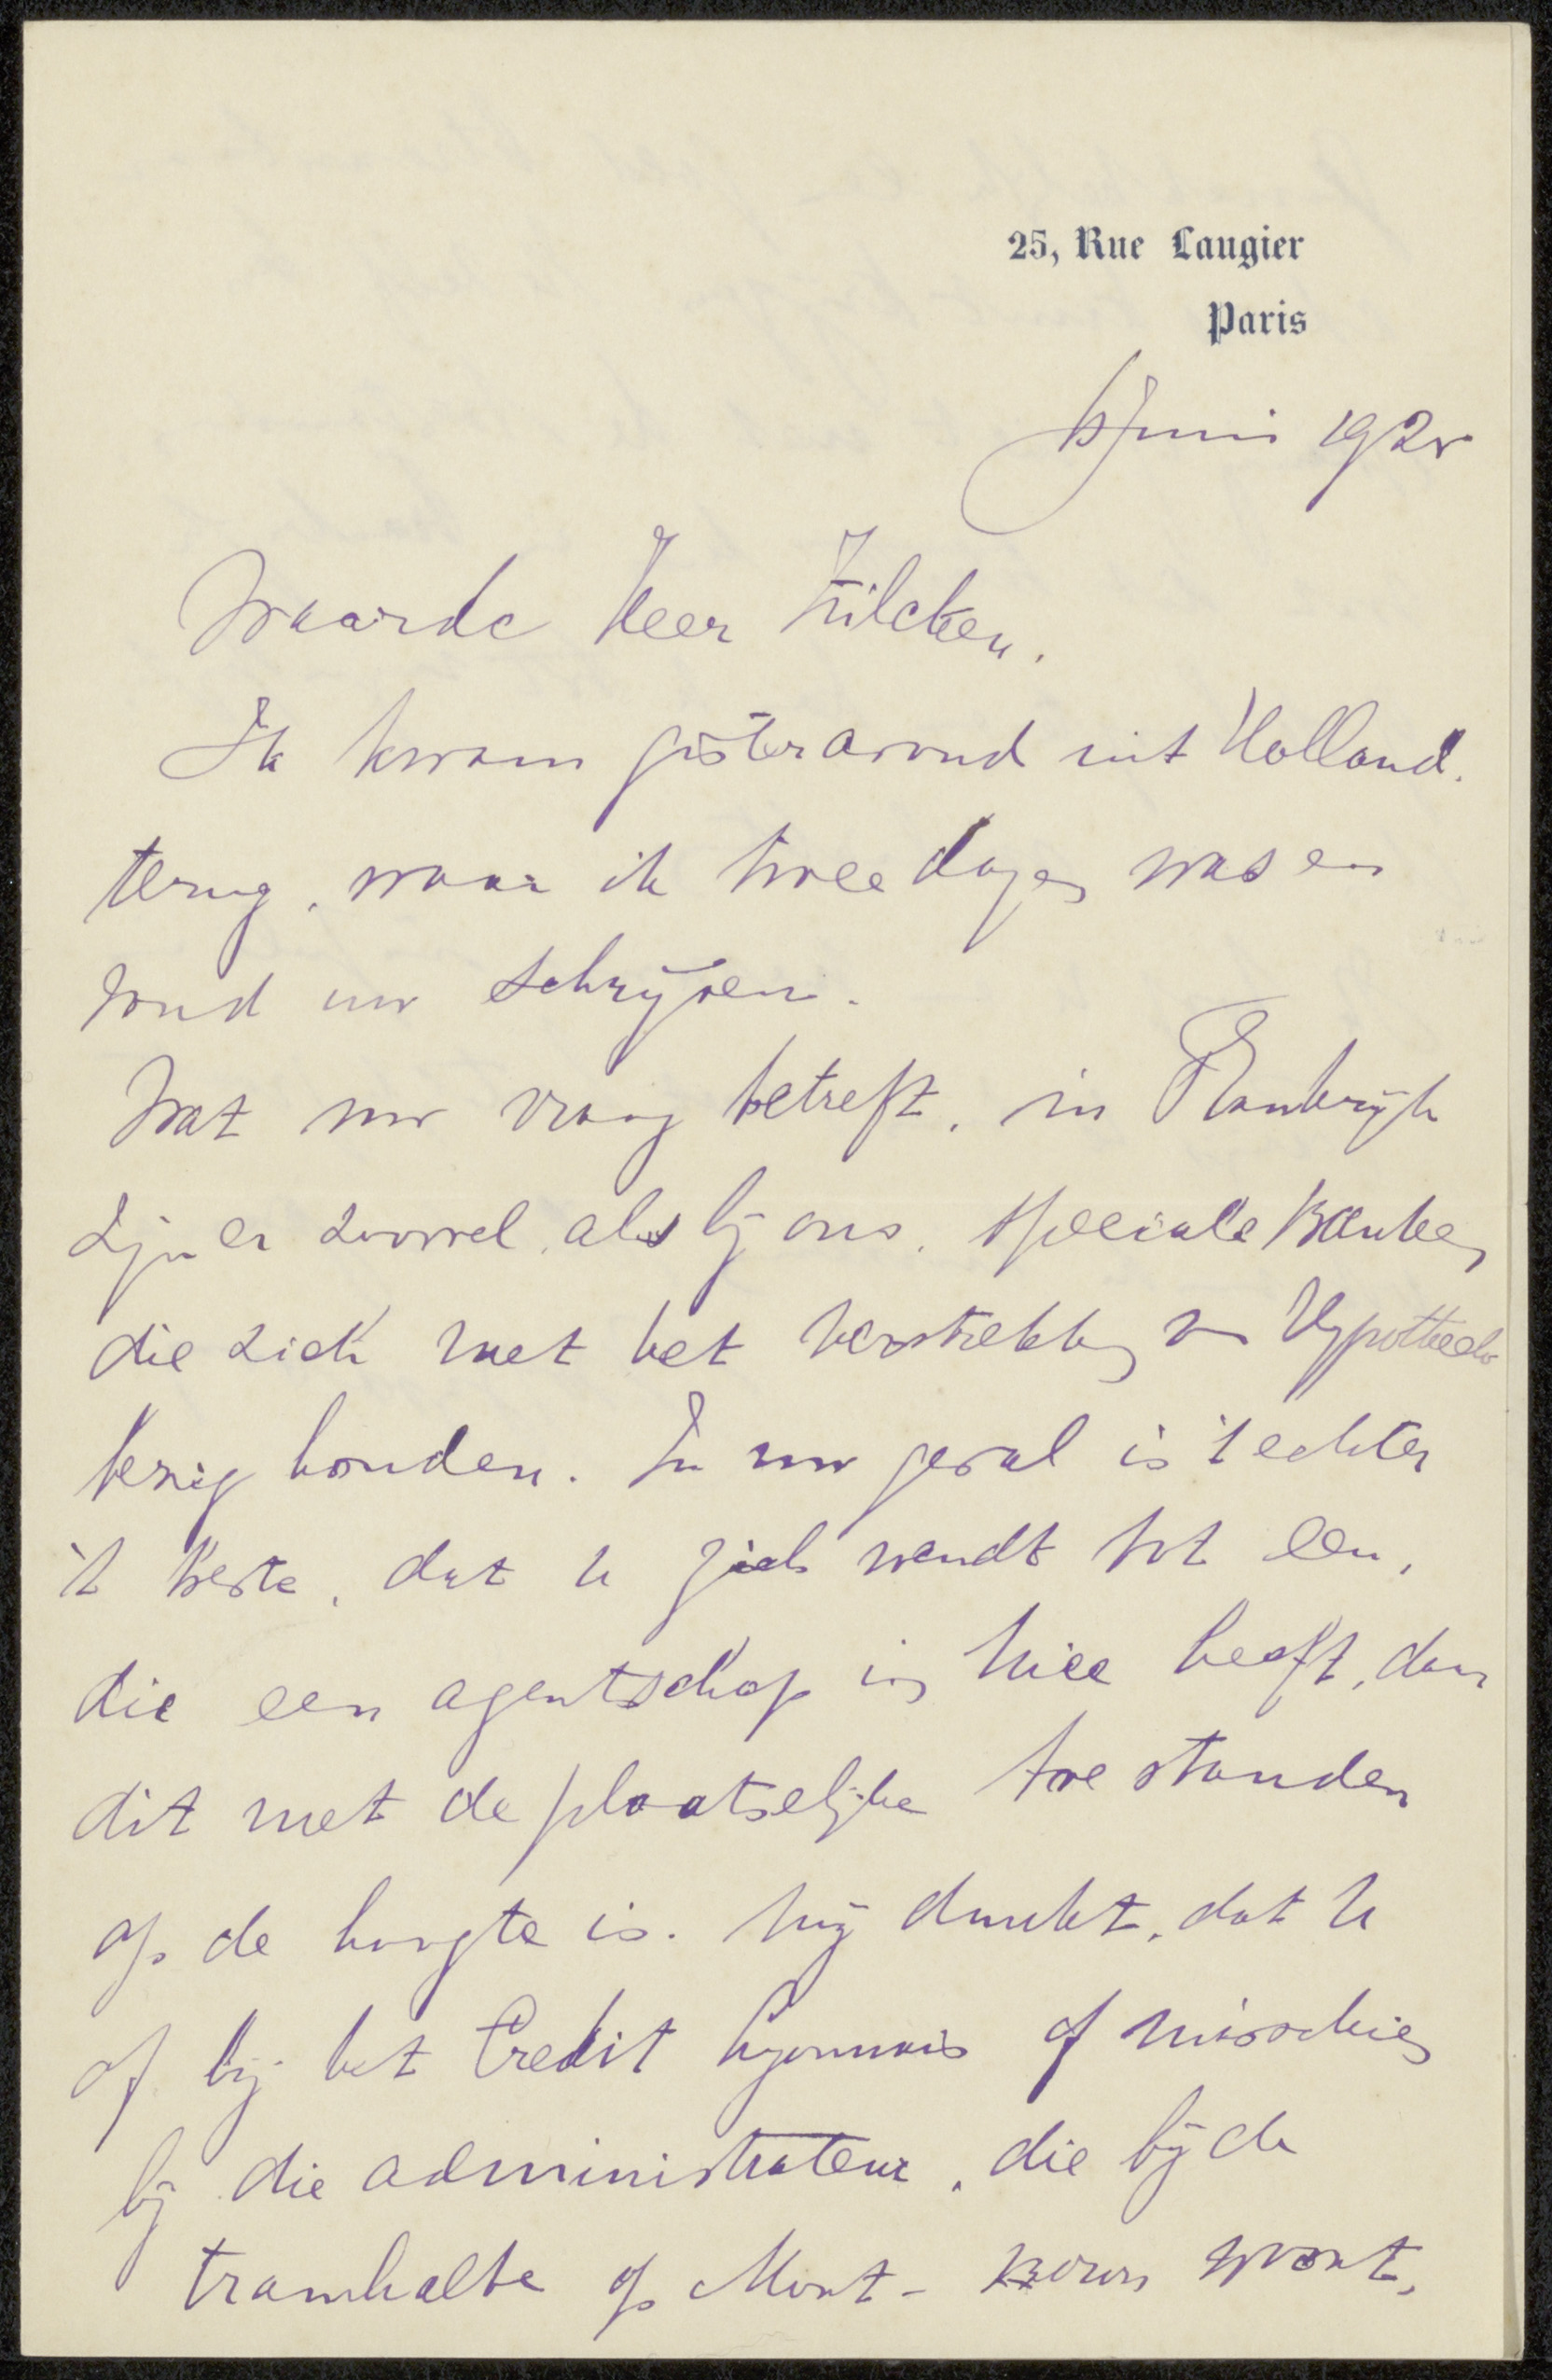 25, Rue Laugier
Paris
6 Juni 192
Waarde Heer Zilcken.
Ik kwam gisteravond uit Holland
terug, waar ik twee dagen was en
vond uw schrijven.
Wat uw vraag betreft, in Frankrijk
zijn er zoowel, als bij ons, speciale Banken
die zich met het verstrekken van Hypotheek
bezig houden. In uw geval is 't echter
't beste, dat U zich wendt tot een,
die een agentschap in Nice heeft, daar
dit met de plaatselijke toestanden
op de hoogte is. Mij dunkt, dat U
of bij het Credit Lyonnais of misschien
bij die administrateur, die bij de
tramhalte op Mont-Boron woont,